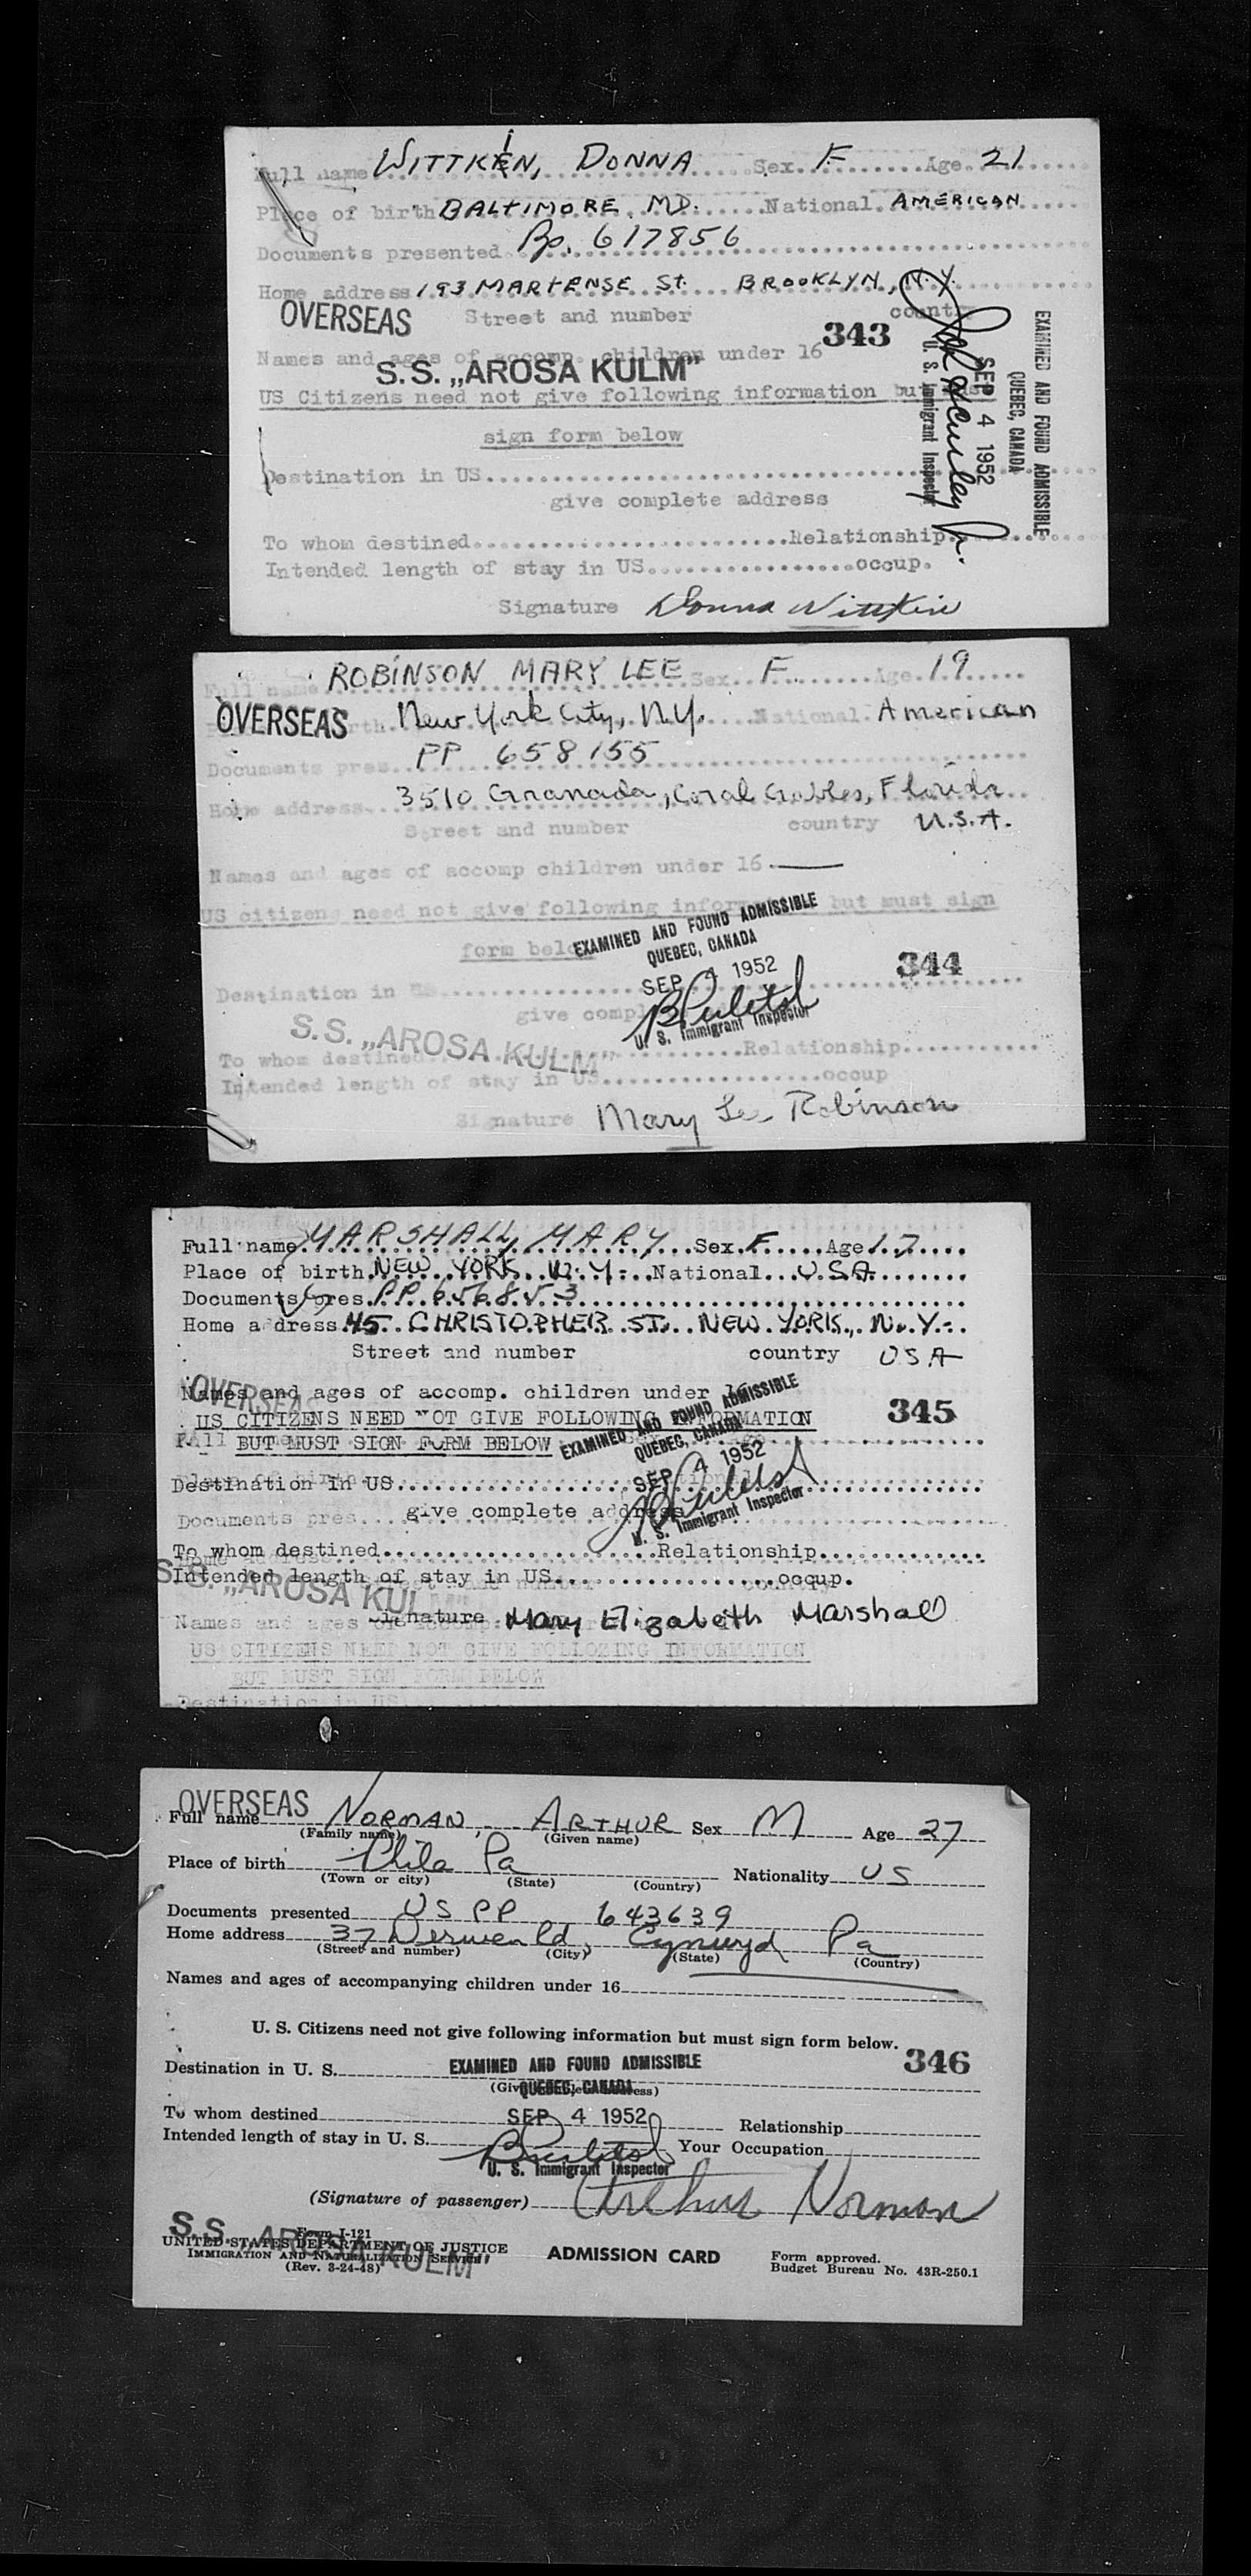 Full name WITTKIN, DONNA Sex F Age 21
Place of birth BALTIMORE, MD. National AMERICAN
Documents presented Pp. 617856
Home address 193 MARTENSE ST. BROOKLYN, N.Y.
OVERSEAS Street and number country
343
Names and ages of accomp. children under 16
S.S. „AROSA KULM"
US Citizens need not give following information but must
sign form below
Destination in US
give complete address
To whom destined Relationship
Intended length of stay in US occup.
Signature Donna Wittkin
EXAMINED AND FOUND ADMISSIBLE
QUEBEC, CANADA
SEP 4 1952
U. S. Immigrant Inspector
Full name ROBINSON MARY LEE Sex F. Age 19
OVERSEAS birth New York City, N.Y. National American
Documents pres. PP 658155
Home address 3510 Granada, Coral Gables, Florida
Street and number country U.S.A.
Names and ages of accomp children under 16
US citizens need not give following information but must sign
form below
EXAMINED AND FOUND ADMISSIBLE
QUEBEC, CANADA
SEP 4 1952
344
Destination in US
give compl
U. S. Immigrant Inspector
S.S. „AROSA KULM"
To whom destined Relationship
Intended length of stay in US occup
Signature Mary Lee Robinson
Full name MARSHALL, MARY Sex F Age 17
Place of birth NEW YORK N.Y. National USA
Documents pres. PP 656853
Home address 45 CHRISTOPHER ST. NEW YORK, N.Y.
Street and number country USA
OVERSEAS
Names and ages of accomp. children under 16
US CITIZENS NEED NOT GIVE FOLLOWING INFORMATION
345
BUT MUST SIGN FORM BELOW
EXAMINED AND FOUND ADMISSIBLE
QUEBEC, CANADA
SEP 4 1952
Destination in US
give complete address
Documents pres.
U. S. Immigrant Inspector
To whom destined Relationship
Intended length of stay in US occup.
S.S. „AROSA KULM"
Signature Mary Elizabeth Marshall
Names and ages of accomp.
US CITIZENS NEED NOT GIVE FOLLOZING INFORMATION
BUT MUST SIGN FORM BELOW
Destination in US
OVERSEAS
Full name NORMAN, ARTHUR Sex M Age 27
(Family name) (Given name)
Place of birth Phila Pa Nationality US
(Town or city) (State) (Country)
Documents presented US PP 643639
Home address 37 Derwen Rd, Cynwyd Pa
(Street and number) (City) (State) (Country)
Names and ages of accompanying children under 16
U. S. Citizens need not give following information but must sign form below.
346
Destination in U. S.
EXAMINED AND FOUND ADMISSIBLE
QUEBEC, CANADA
To whom destined SEP 4 1952 Relationship
Intended length of stay in U. S. Your Occupation
U. S. Immigrant Inspector
(Signature of passenger) Arthur Norman
S.S. „AROSA KULM"
Form I-121
UNITED STATES DEPARTMENT OF JUSTICE
IMMIGRATION AND NATURALIZATION SERVICE
(Rev. 3-24-48)
ADMISSION CARD
Form approved.
Budget Bureau No. 43R-250.1